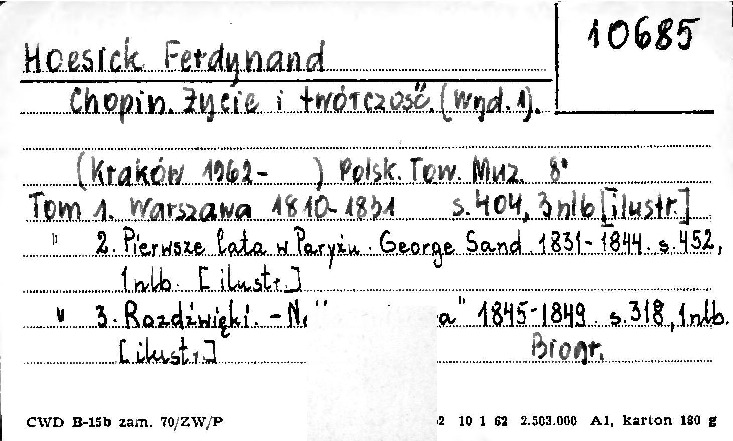 10685
Hoesick Ferdynand
Chopin. Życie i twórczość. (Wyd. 1).
(Kraków 1962- ) Polsk. Tow. Muz. 8°
Tom 1. Warszawa 1810-1831 s. 404, 3 nlb [ilustr.]
" 2. Pierwsze lata w Paryżu. George Sand 1831-1844. s. 452,
1 nlb. [ilustr.]
" 3. Rozdźwięki. - a" 1845-1849 s. 318, 1 nlb.
[ilustr.] Biogr.
CWD B-15b zam. 70/ZW/P 2 10 1 62 2.503.000 A1, karton 180 g